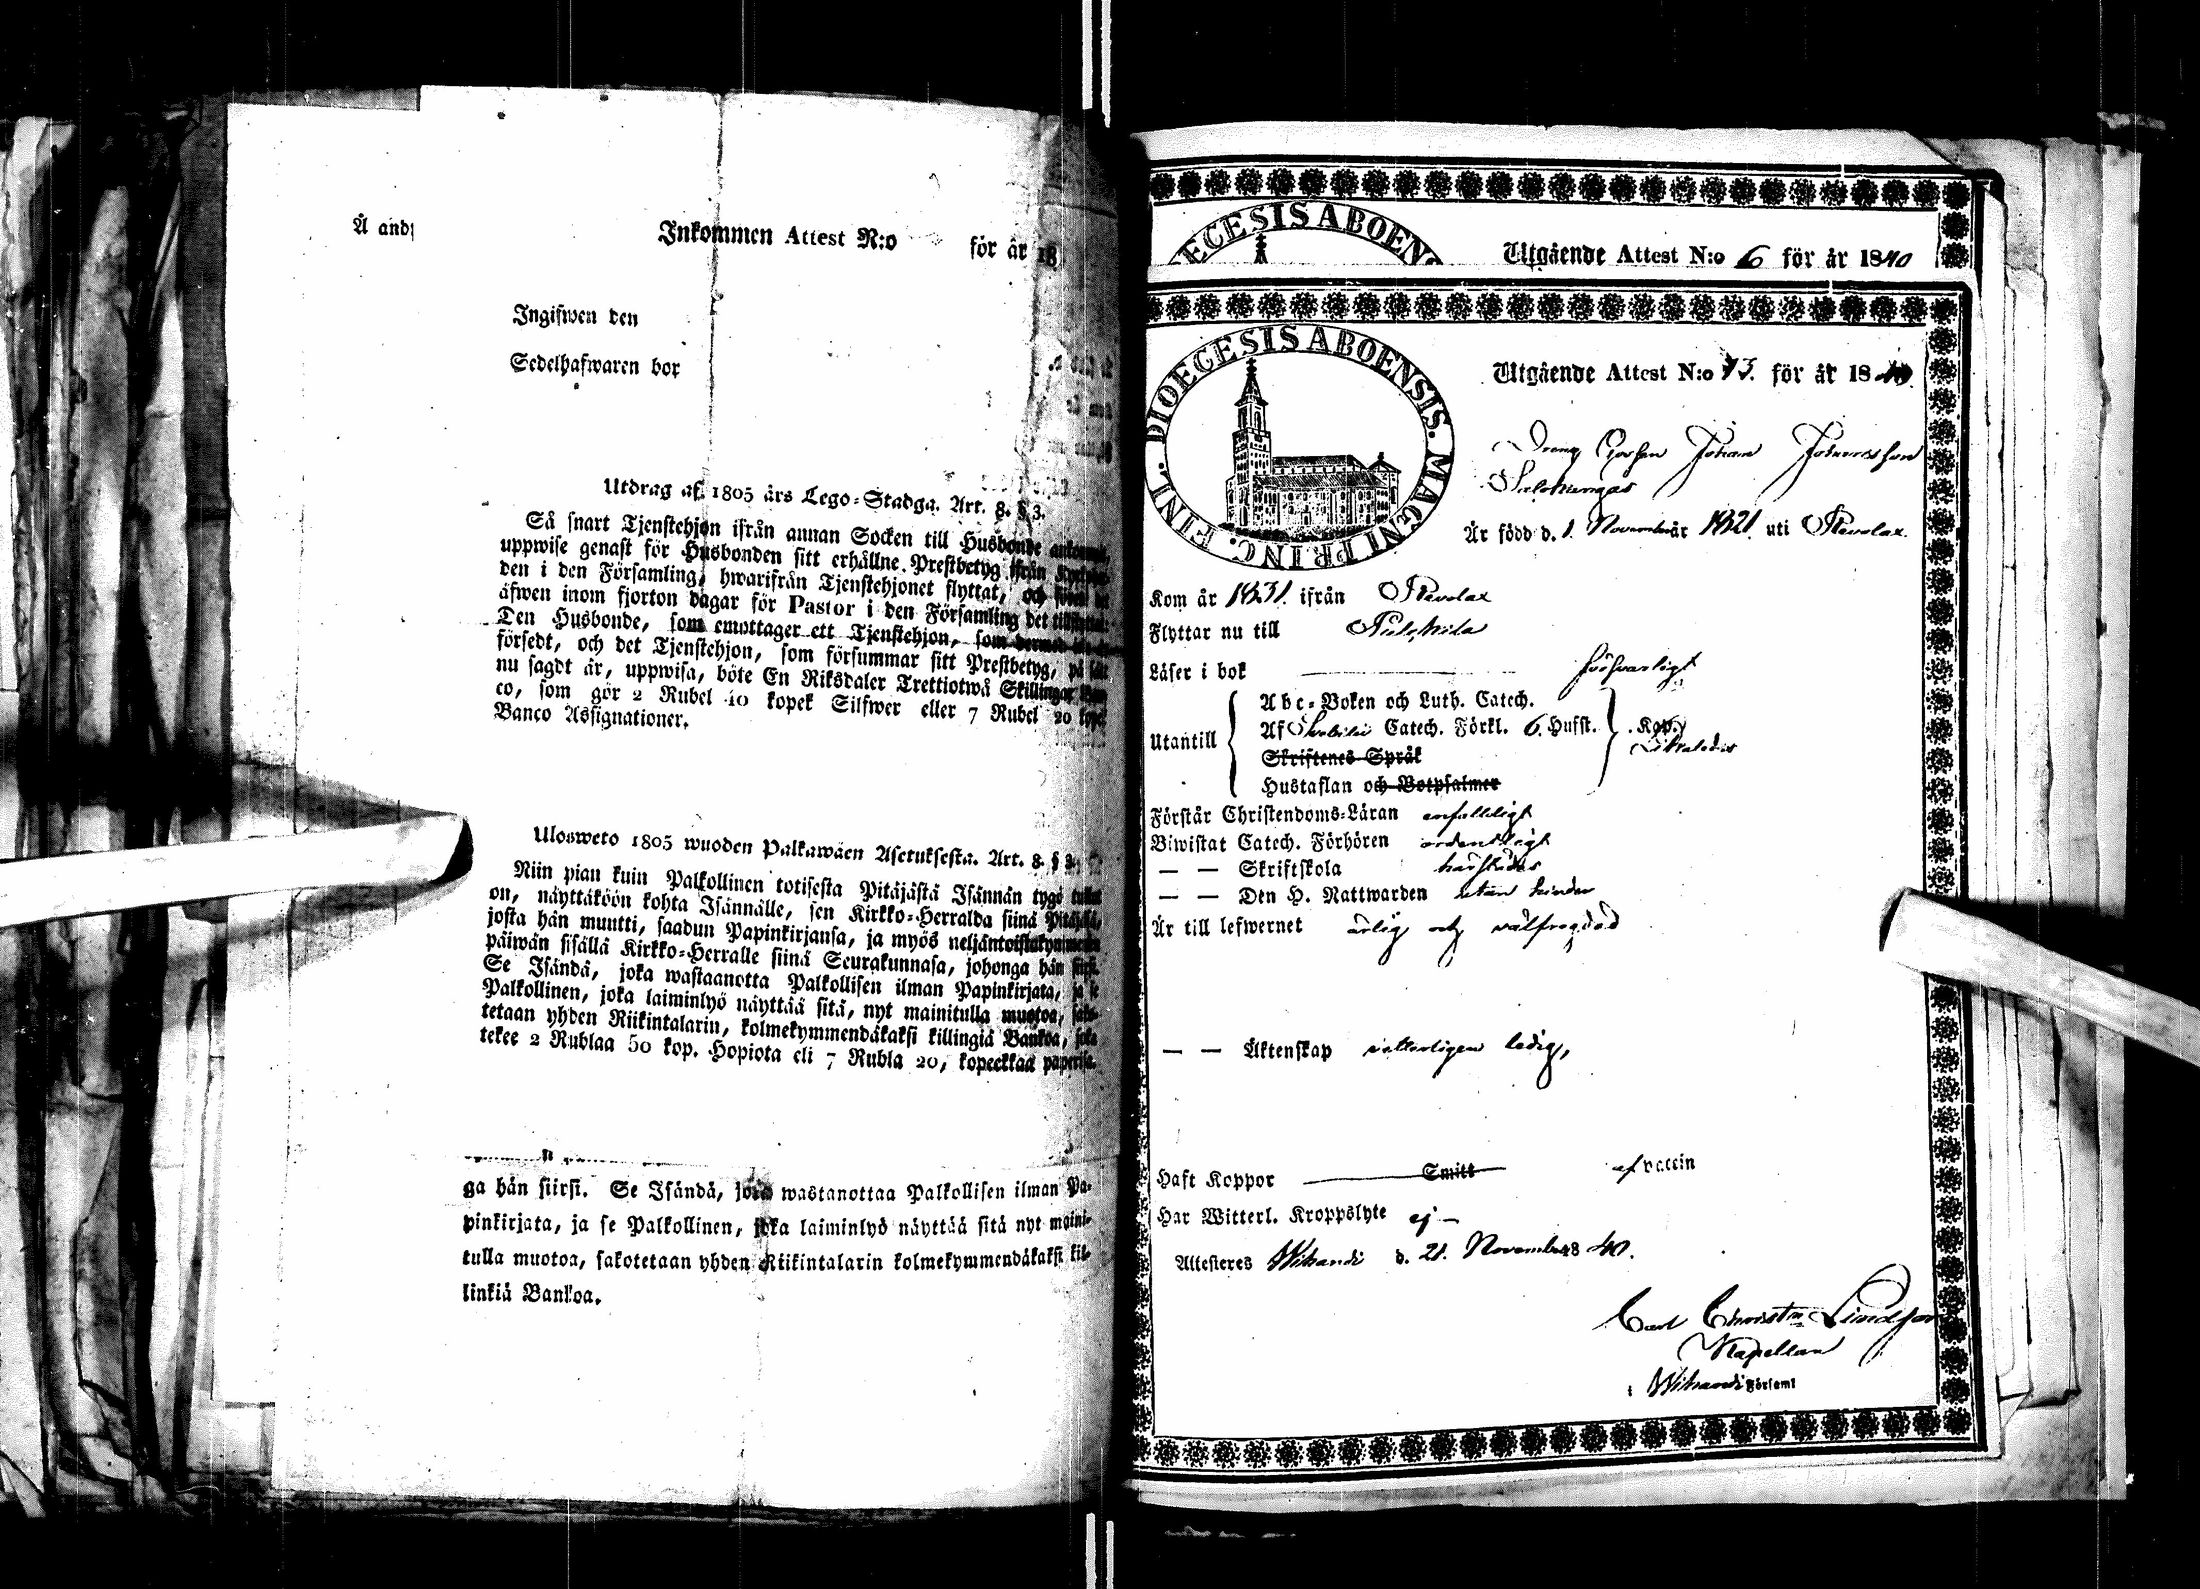 Å ands
Inkommen Attest N:o för år 18
Ingifwen den
Sedelhafwaren bor
Utdrag af 1805 års Lego-Stadga. Art. 8. § 3.
Så snart Tjenstehjon ifrån annan Socken till Husbonde
uppwise genast för Husbonden sitt erhållne Prestbetyg ifrån
den i den Församling, hwarifrån Tjenstehjonet flyttat, och
äfwen inom fjorton dagar för Pastor i den Församling det
Den Husbonde, som emottager ett Tjenstehjon, som
försedt, och det Tjenstehjon, som försummar sitt Prestbetyg, på sätt
nu sagdt är, uppwisa, böte En Riksdaler Trettiotwå Skillingar Ban
co, som gör 2 Rubel 40 kopek Silfwer eller 7 Rubel 20 kope
Banco Assignationer.
Ulosweto 1805 wuoden Palkawäen Asetuksesta. Art. 8. § 3.
Niin pian kuin Palkollinen totisesta Pitäjästä Isännän tygö tullut
on, näyttäköön kohta Isännälle, sen Kirkko-Herralda siinä Pitäjäsä,
josta hän muutti, saadun Papinkirjansa, ja myös neljäntoistakymmenen
päiwän sisällä Kirkko-Herralle siinä Seurakunnasa, johonga hän siirsi.
Se Isändä, joka wastaanotta Palkollisen ilman Papinkirjata, ja se
Palkollinen, joka laiminlyö näyttää sitä, nyt mainitulla muotoa, sako-
tetaan yhden Riikintalarin, kolmekymmendäkaksi killingiä Bankoa, joka
tekee 2 Rublaa 50 kop. Hopiota eli 7 Rubla 20, kopeekkaa paperisa.
ga hän siirsi. Se Isändä, joka wastanottaa Palkollisen ilman Pa-
pinkirjata, ja se Palkollinen, joka laiminlyö näyttää sitä nyt maini-
tulla muotoa, sakotetaan yhden Riikintalarin kolmekymmendäkaksi kil-
linkiä Bankoa.
ECESIS ABOEN
Utgående Attest N:o 6 för år 1840
DIOECESIS ABOENSIS. MAGNI PRINC. FINL.
Utgående Attest N:o 13. för år 1840
Dreng Johan Johansson
Är född d. 1 November år 1821 uti Revolax.
Kom år 1831. ifrån Revolax
Flyttar nu till Pulkkila
Läser i bok försvarligt
Abc-Boken och Luth. Catech.
Utantill Af Svebilii Catech. Förkl. 6. Hufst. Kap.
Skriftenes Språk
Hustaflan och Botpsalmer
Förstår Christendoms-Läran enfaldeligt
Biwistat Catech. Förhören ordentligt
— — Skriftskola härstädes
— — Den H. Nattwarden utan hinder
Är till lefwernet ärlig och välfregdad
— — Äktenskap veterligen ledig,
Haft Koppor Smitt af vaccin
Har Witterl. Kroppslyte ej —
Attesteres Wihandi d. 21. November 1840.
Carl Christn Lindfors
Kapellan
i Wihandi Förseml